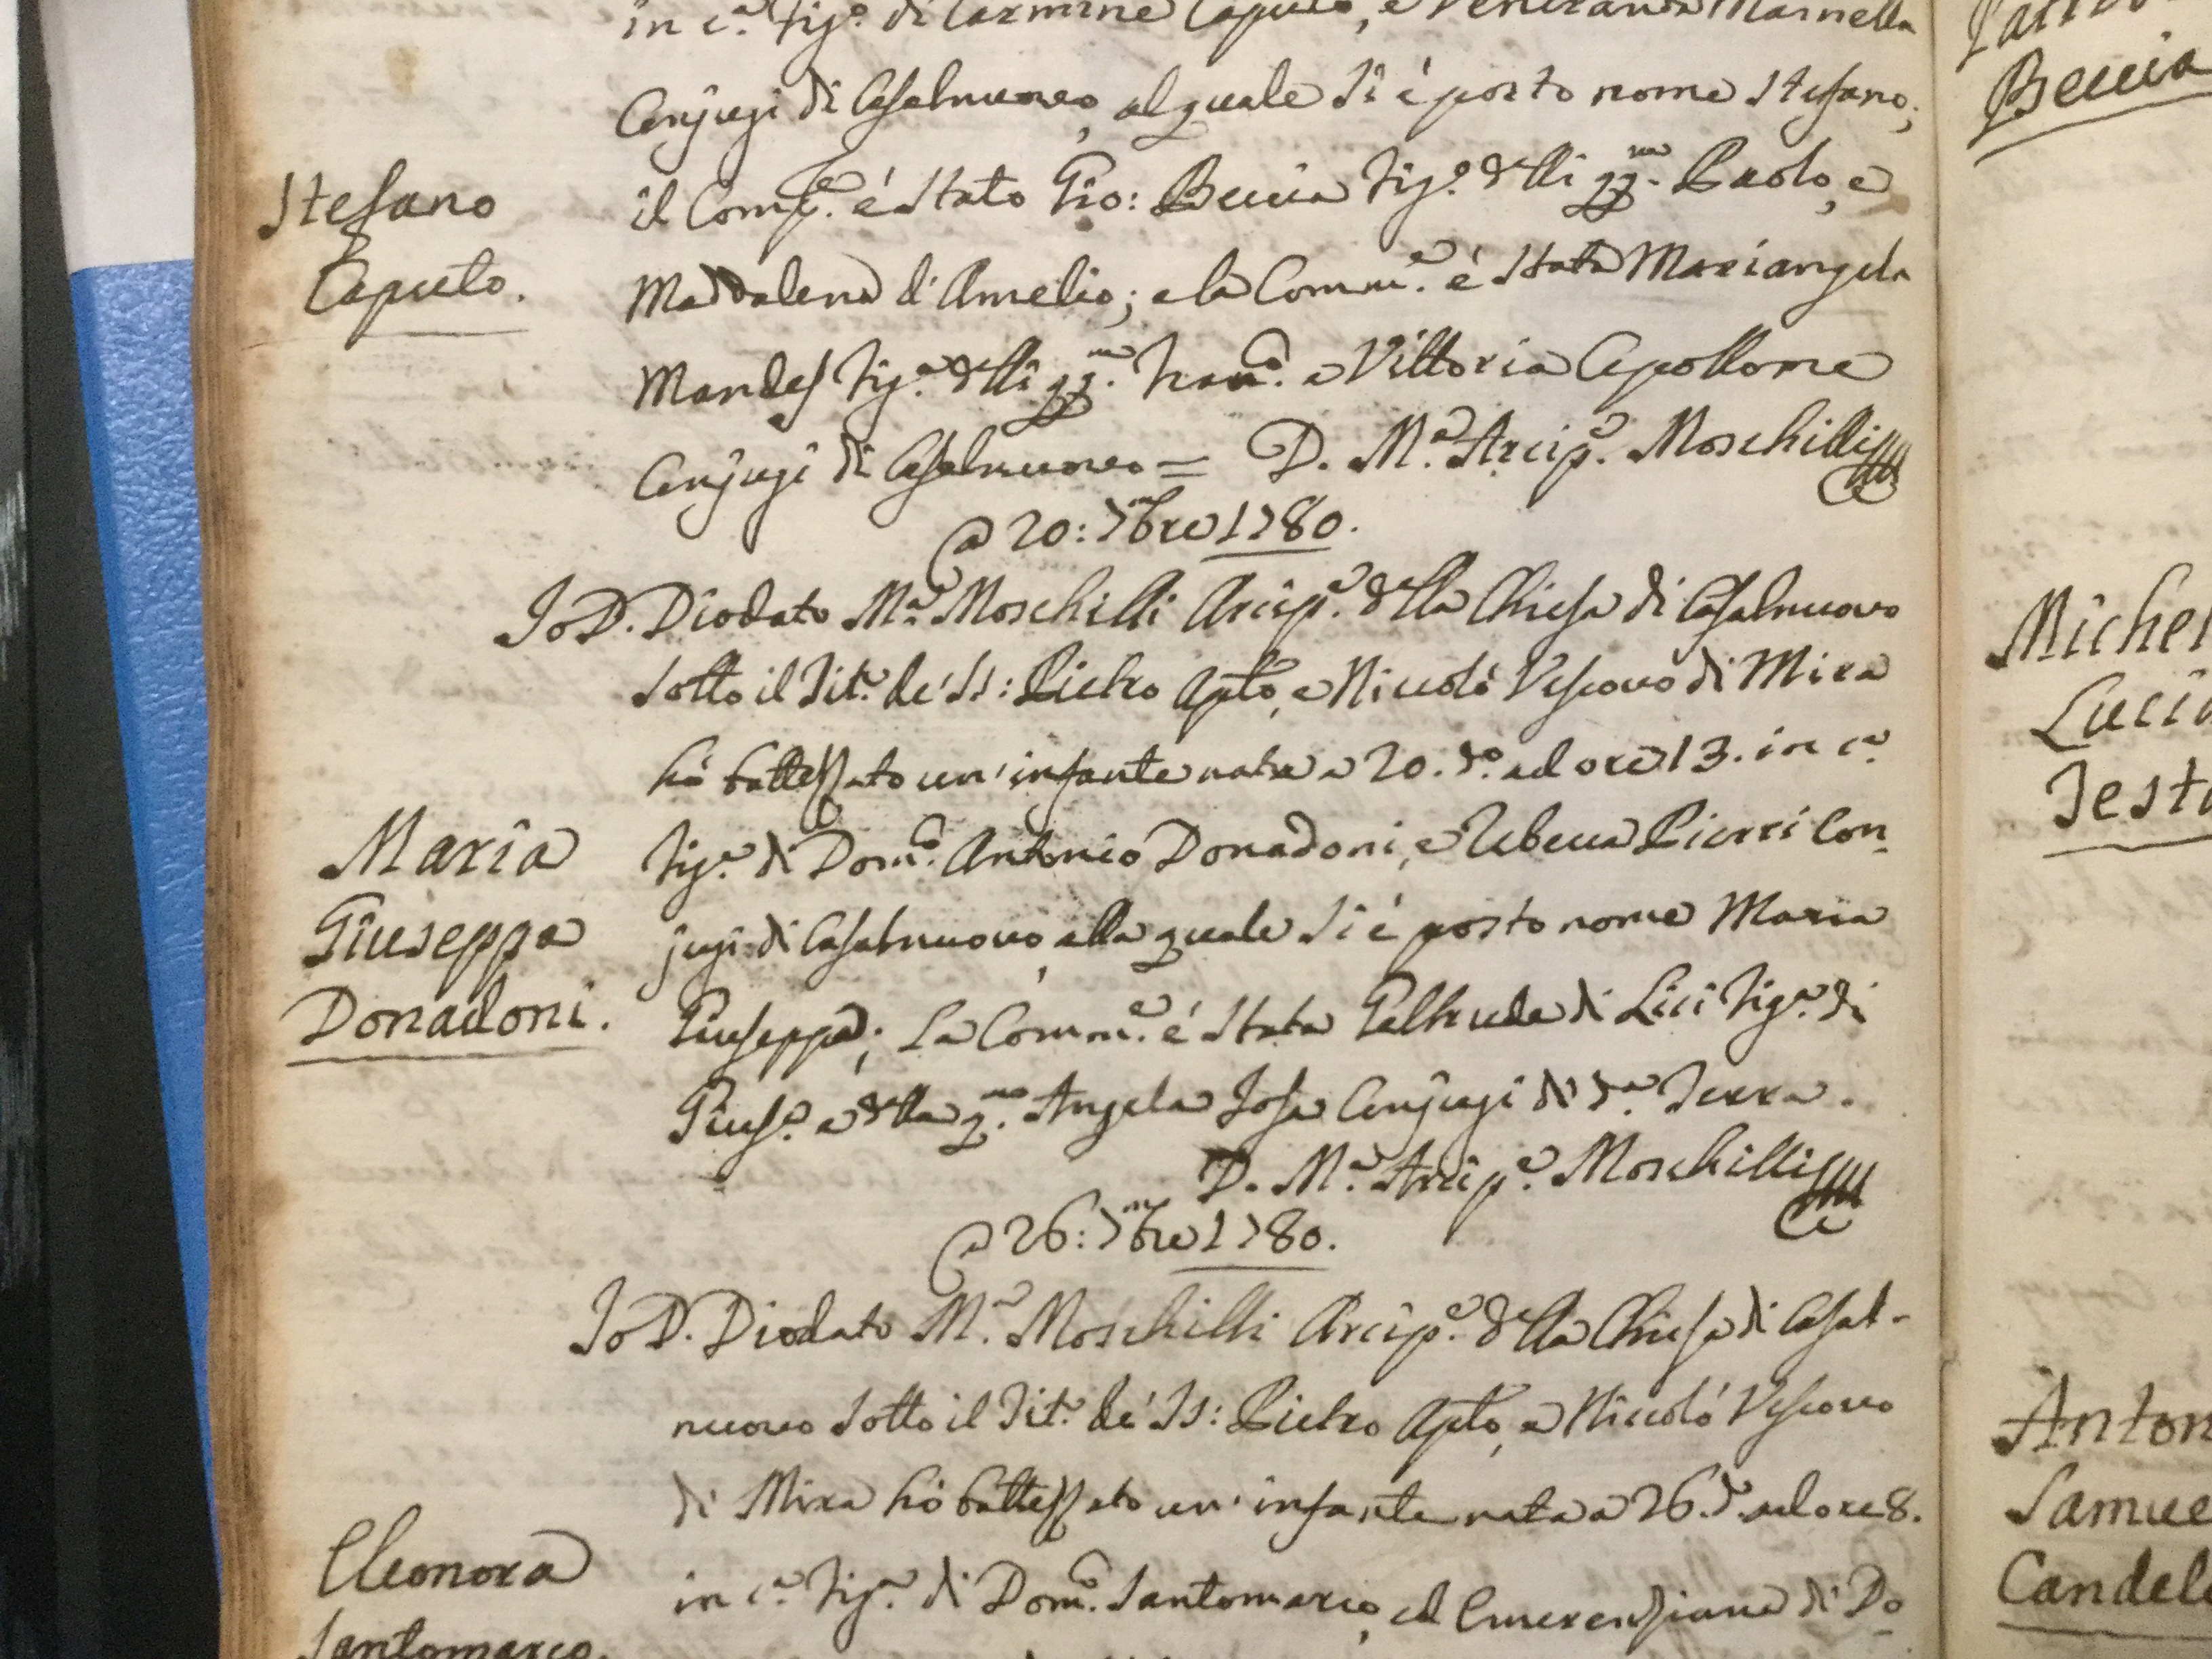 in c.ª fig.º di Carmine Caputo, e Veneranda Marnella
Conjugi di Casalnuovo, al quale si è posto nome Stefano;
Stefano
Caputo.
il Comp.e è stato Gio: Beccia fig.º d'lli qq.m Paolo, e
Maddalena d'Amelio; e la Comm.e è stata Mariangela
Mandes fig.ª d'lli qq.m Fran.co e Vittoria Capollone
Conjugi di Casalnuovo = D. M.ª Arcip.e Moschilli
@ 20: 7mbre 1780.
Io D. Diodato M.ª Moschilli Arcip.e d'lla Chiesa di Casalnuovo
sotto il Tit.º de' SS: Pietro Apto, e Niccolò Vescovo di Mira
hò battezzato un'infante nata a 20. d.º ad ore 13. in c.ª
Maria
Giuseppa
Donadoni.
fig.ª di Dom.co Antonio Donadoni, e Rebecca Pierri Con
jugi di Casalnuovo, alla quale si è posto nome Maria
Giuseppa; La Comm.e è stata Geltrude di Lici fig.ª di
Gius.e e d'lla q.m Angela Iosa Conjugi di d.ª Terra.
D. M.ª Arcip.e Moschilli
@ 26: 7mbre 1780.
Io D. Diodato M.ª Moschilli Arcip.e d'lla Chiesa di Casal-
nuovo sotto il Tit.º de' SS: Pietro Apto, e Niccolò Vescovo
di Mira hò battezzato un'infante nata a 26. d.º ad ore 8.
Eleonora
Santomarco.
in c.ª fig.ª di Dom.co Santomarco, ed Emerenziana di Do
Beccia
Michel
Lucia
Testa
Anton
Samue
Candel